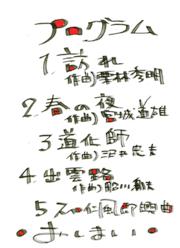 プログラム
1 訪れ
作曲) 栗林秀明
2. 春の夜
作曲) 宮城道雄
3 道化師
作曲) 沢井忠夫
4 出雲路
作曲)
5
おしまい